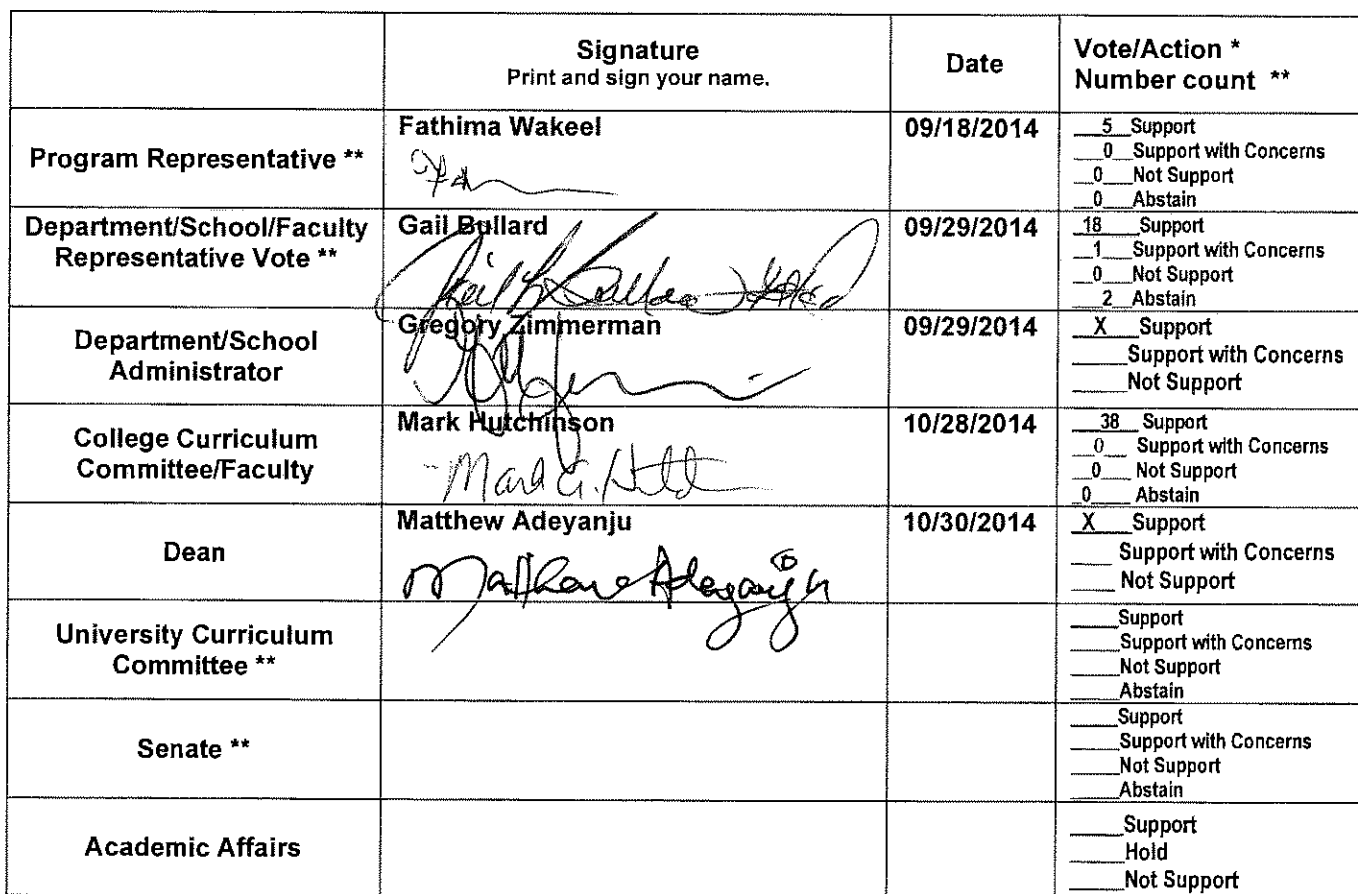 Signature
Print and sign your name.
Date
Vote/Action *
Number count **
Program Representative **
Fathima Wakeel
09/18/2014
__5__Support
__0__Support with Concerns
__0__Not Support
__0__Abstain
Department/School/Faculty
Representative Vote **
Gail Bullard
09/29/2014
_18___Support
__1__Support with Concerns
__0__Not Support
__2_Abstain
Department/School
Administrator
Gregory Zimmerman
09/29/2014
__X__Support
____Support with Concerns
____Not Support
College Curriculum
Committee/Faculty
Mark Hutchinson
Mark G.
10/28/2014
__38__Support
__0__ Support with Concerns
__0___ Not Support
_0____ Abstain
Dean
Matthew Adeyanju
Matthew Adeyanju
10/30/2014
_X___Support
____ Support with Concerns
____ Not Support
University Curriculum
Committee **
____Support
____Support with Concerns
____Not Support
____Abstain
Senate **
____Support
____Support with Concerns
____Not Support
____Abstain
Academic Affairs
____Support
____Hold
____Not Support